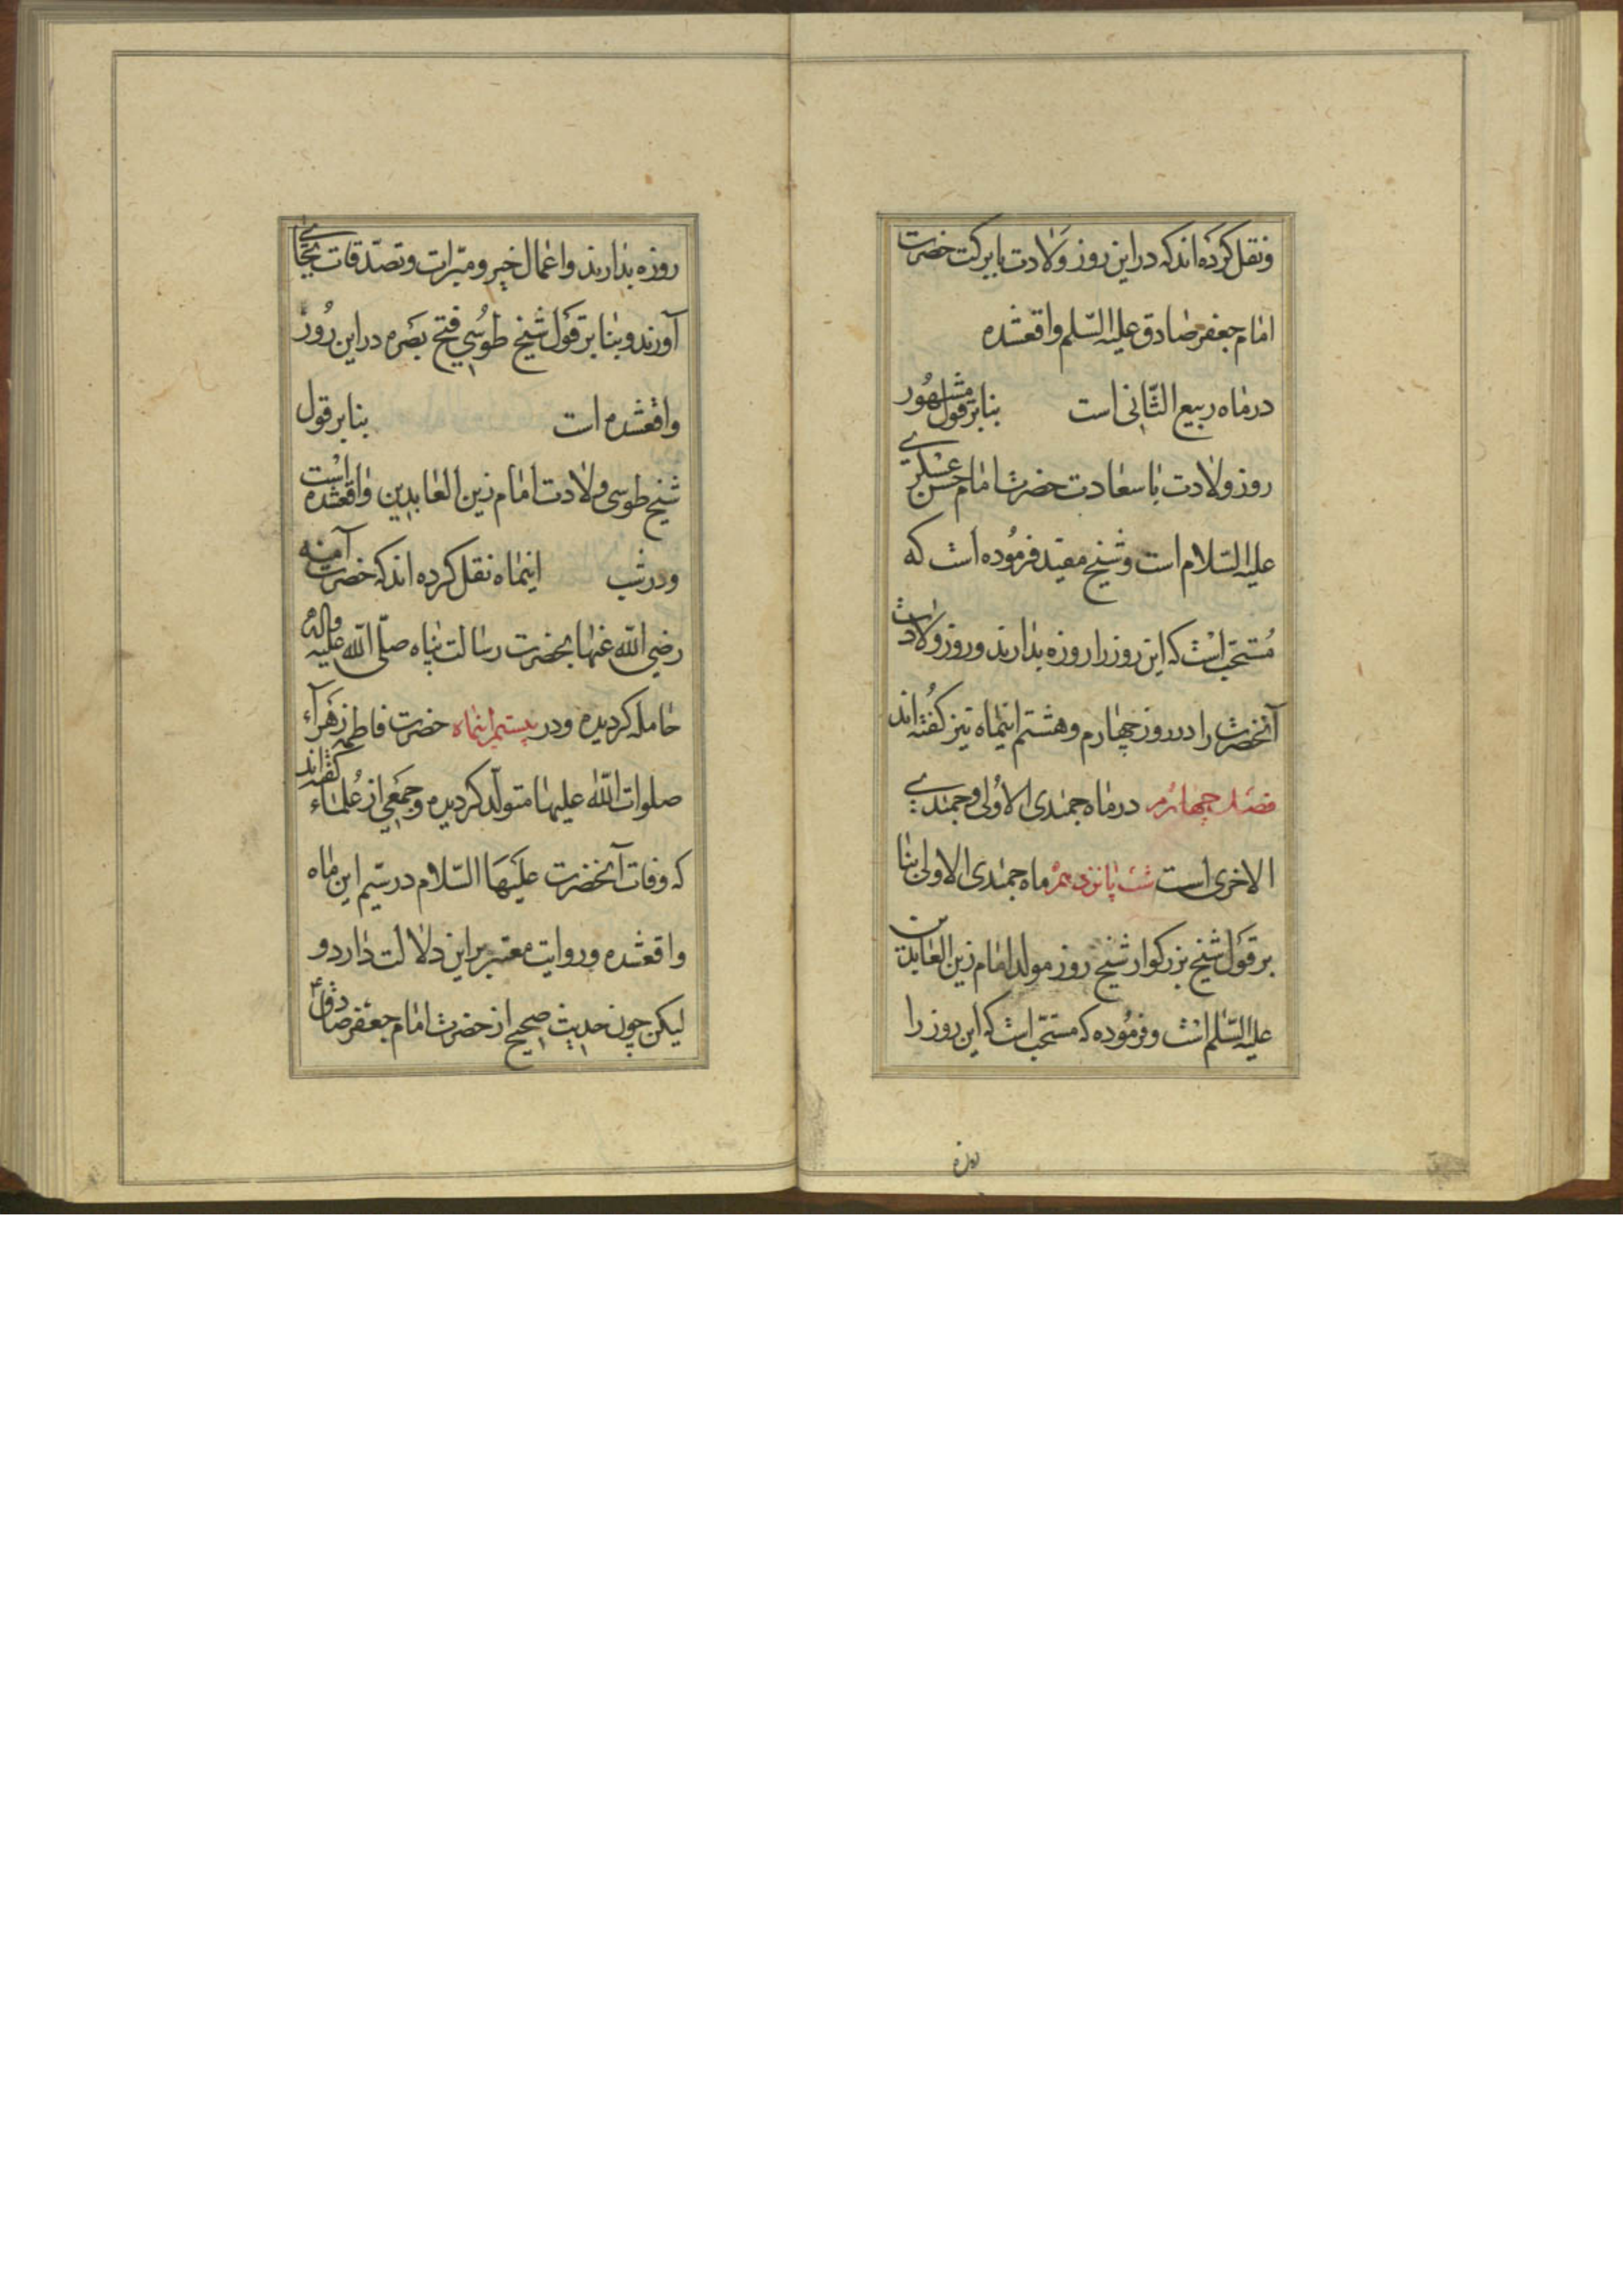 ونقل کرده اند که در این روز ولادت با برکت حضرت
امام جعفر صادق علیه السّلم واقعشده
در ماه ربیع الثّانی است بنا بر قول مشهور
روز ولادت با سعادت حضرت امام حسن عسکری
علیه السّلام است و شیخ مفید فرموده است که
مُستحبّ است که این روز را روزه بدارند و روز ولادت
آنحضرت را در روز چهارم و هشتم اینماه نیز کفته اند
فصل چهارم در ماه جمندی الاولی و جمندی
الاخری است شب پانزدهم ماه جمندی الاولی بنا
بر قول شیخ بزرکوار شیخ روز مولد امام زین العابدین
علیه السّلم است و فرموده که مستحبّ است که این روز را
روزه
روزه بدارند و اعمال خیر و مبّرات و تصدّقات بجای
آورند و بنا بر قول شیخ طوسی فتح بصره در این روز
واقعشده است بنا بر قول
شیخ طوسی ولادت امام زین العابدین واقعشده است
و در شب اینماه نقل کرده اند که حضرت آمنه
رضی الله عنها بحضرت رسالت پناه صلّی الله علیه واله
حامله کردیده و در بیستم اینماه حضرت فاطمه زهرآء
صلوات الله علیها متولّد کردیده و جمعی از علماء کفته اند
که وفات آنحضرت علیها السّلام در سیّم این ماه
واقعشده و روایت معتبر بر این دلالت دارد و
لیکن چون حدیث صحیح از حضرت امام جعفر صادق ع